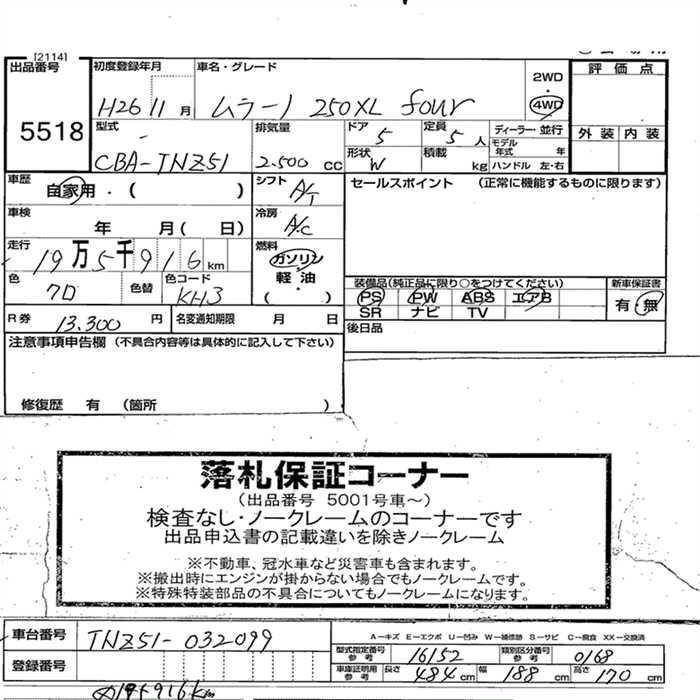 [2114]
出品番号
5518
初度登録年月
H26 11月
車名・グレード
ムラーノ 250XL four
2WD
4WD
評価点
外装 内装
型式
CBA-TNZ51
排気量
2.500 cc
ドア
5
定員
5人
形状
W
積載
kg
ディーラー・並行
モデル年式 年
ハンドル 左・右
車歴
自家用・( )
シフト
A/T
セールスポイント (正常に機能するものに限ります)
車検
年 月( 日)
冷房
A/C
走行
19万5千916km
燃料
ガソリン
軽油
( )
色
クロ
色替
色コード
KH3
装備品(純正品に限り○をつけてください)
PS PW ABS エアB
SR ナビ TV
新車保証書
有・無
R券
13.300円
名変通知期限 月 日
後日品
注意事項申告欄 (不具合内容等は具体的に記入して下さい)
修復歴 有 (箇所 )
落札保証コーナー
(出品番号 5001号車～)
検査なし・ノークレームのコーナーです
出品申込書の記載違いを除きノークレーム
※不動車、冠水車など災害車も含まれます。
※搬出時にエンジンが掛からない場合でもノークレームです。
※特殊特装部品の不具合についてもノークレームになります。
車台番号
TNZ51-032099
A－キズ E－エクボ U－凹み W－補修跡 S－サビ C－腐食 XX－交換済
登録番号
型式指定番号 参考
16152
類別区分番号 参考
0168
車庫証明用 参考
長さ 484cm 幅 188cm 高さ 170cm